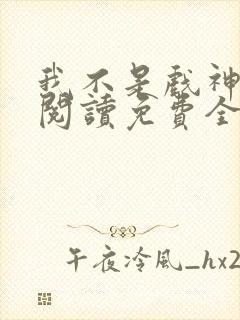 我不是戲神
閱讀免費全
午夜冷風_hx2